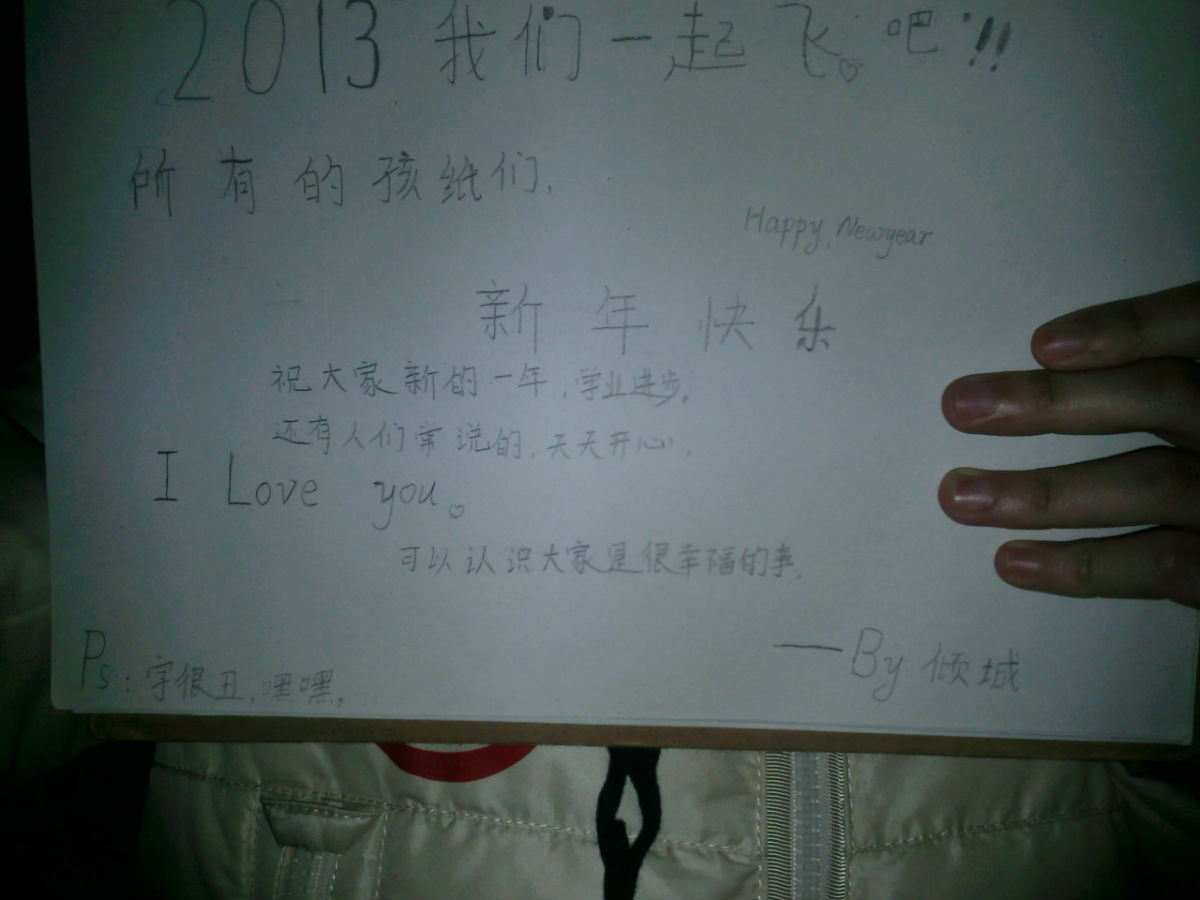 2013 我们一起飞吧!!
所有的孩纸们,
Happy Newyear
新年快乐
祝大家新的一年,学业进步。
还有人们常说的,天天开心。
I Love you。
可以认识大家是很幸福的事。
——By 倾城
Ps:字很丑,嘿嘿。